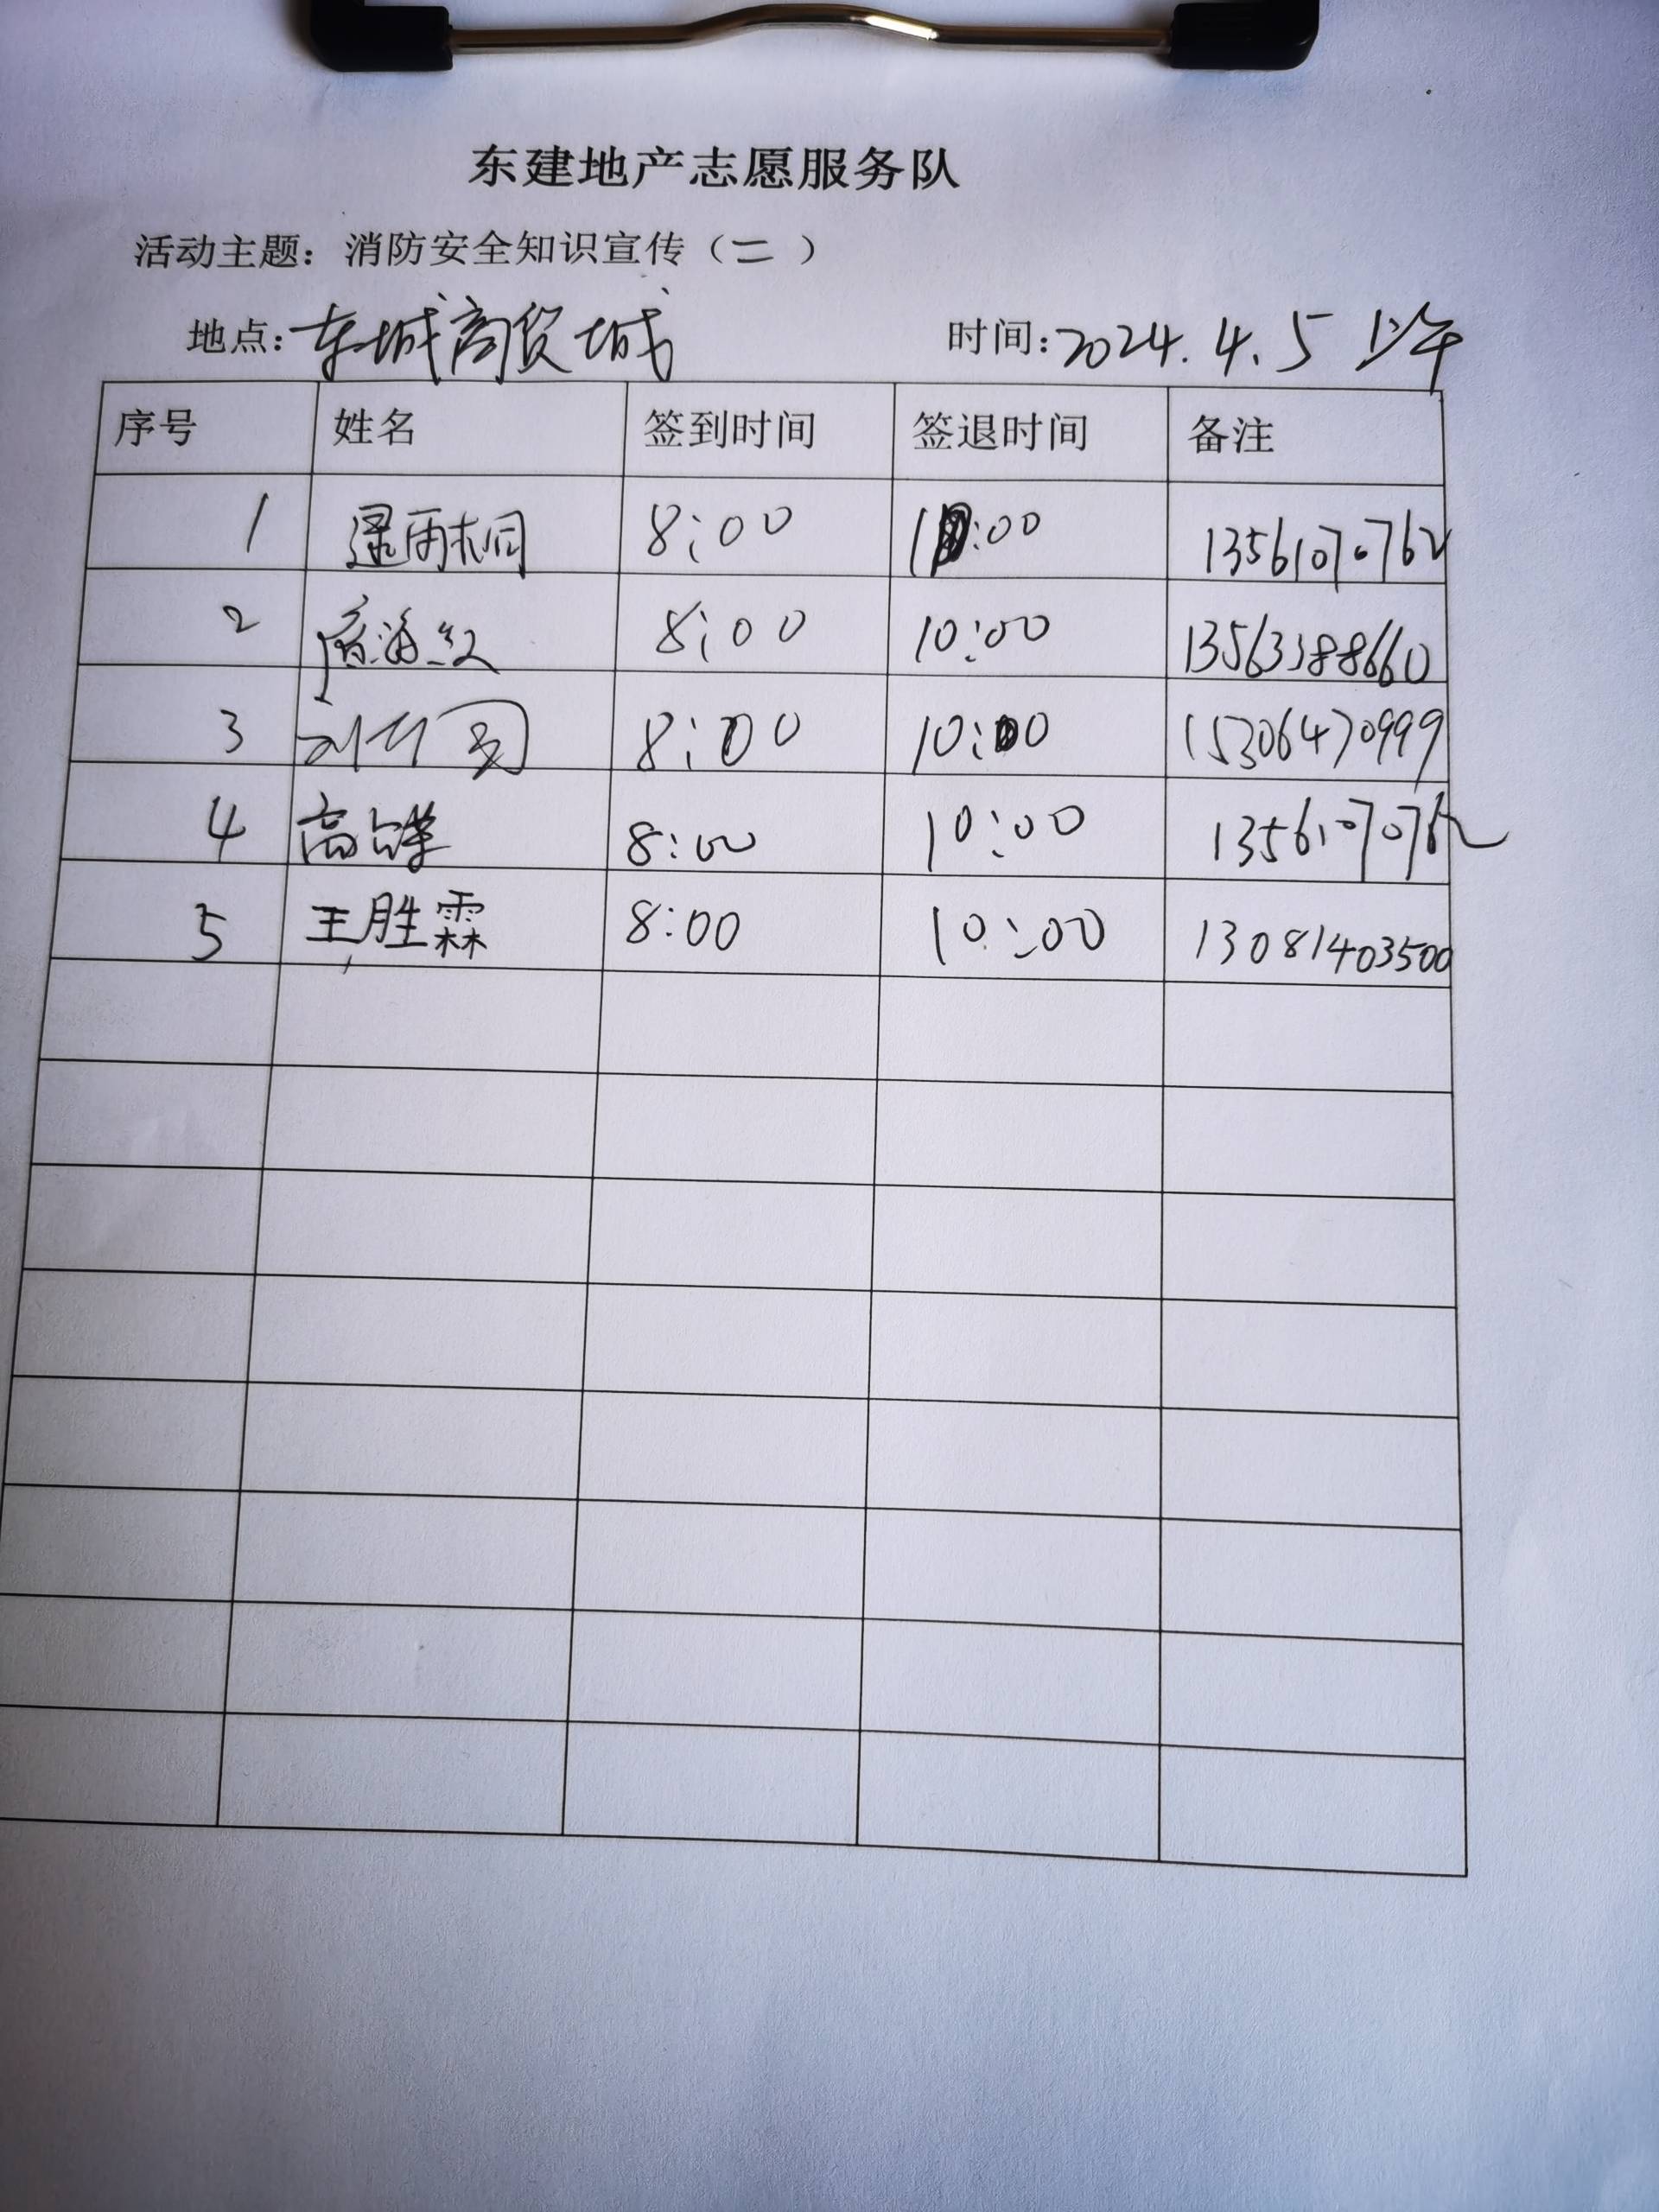 东建地产志愿服务队
活动主题：消防安全知识宣传（二）
地点：东城商贸城 时间：2024.4.5 上午
序号 姓名 签到时间 签退时间 备注
1 逯雨桐 8:00 10:00 13561070762
2 8:00 10:00 13563388660
3 8:00 10:00 15306470999
4 高 8:00 10:00 13561070762
5 王胜霖 8:00 10:00 13081403500